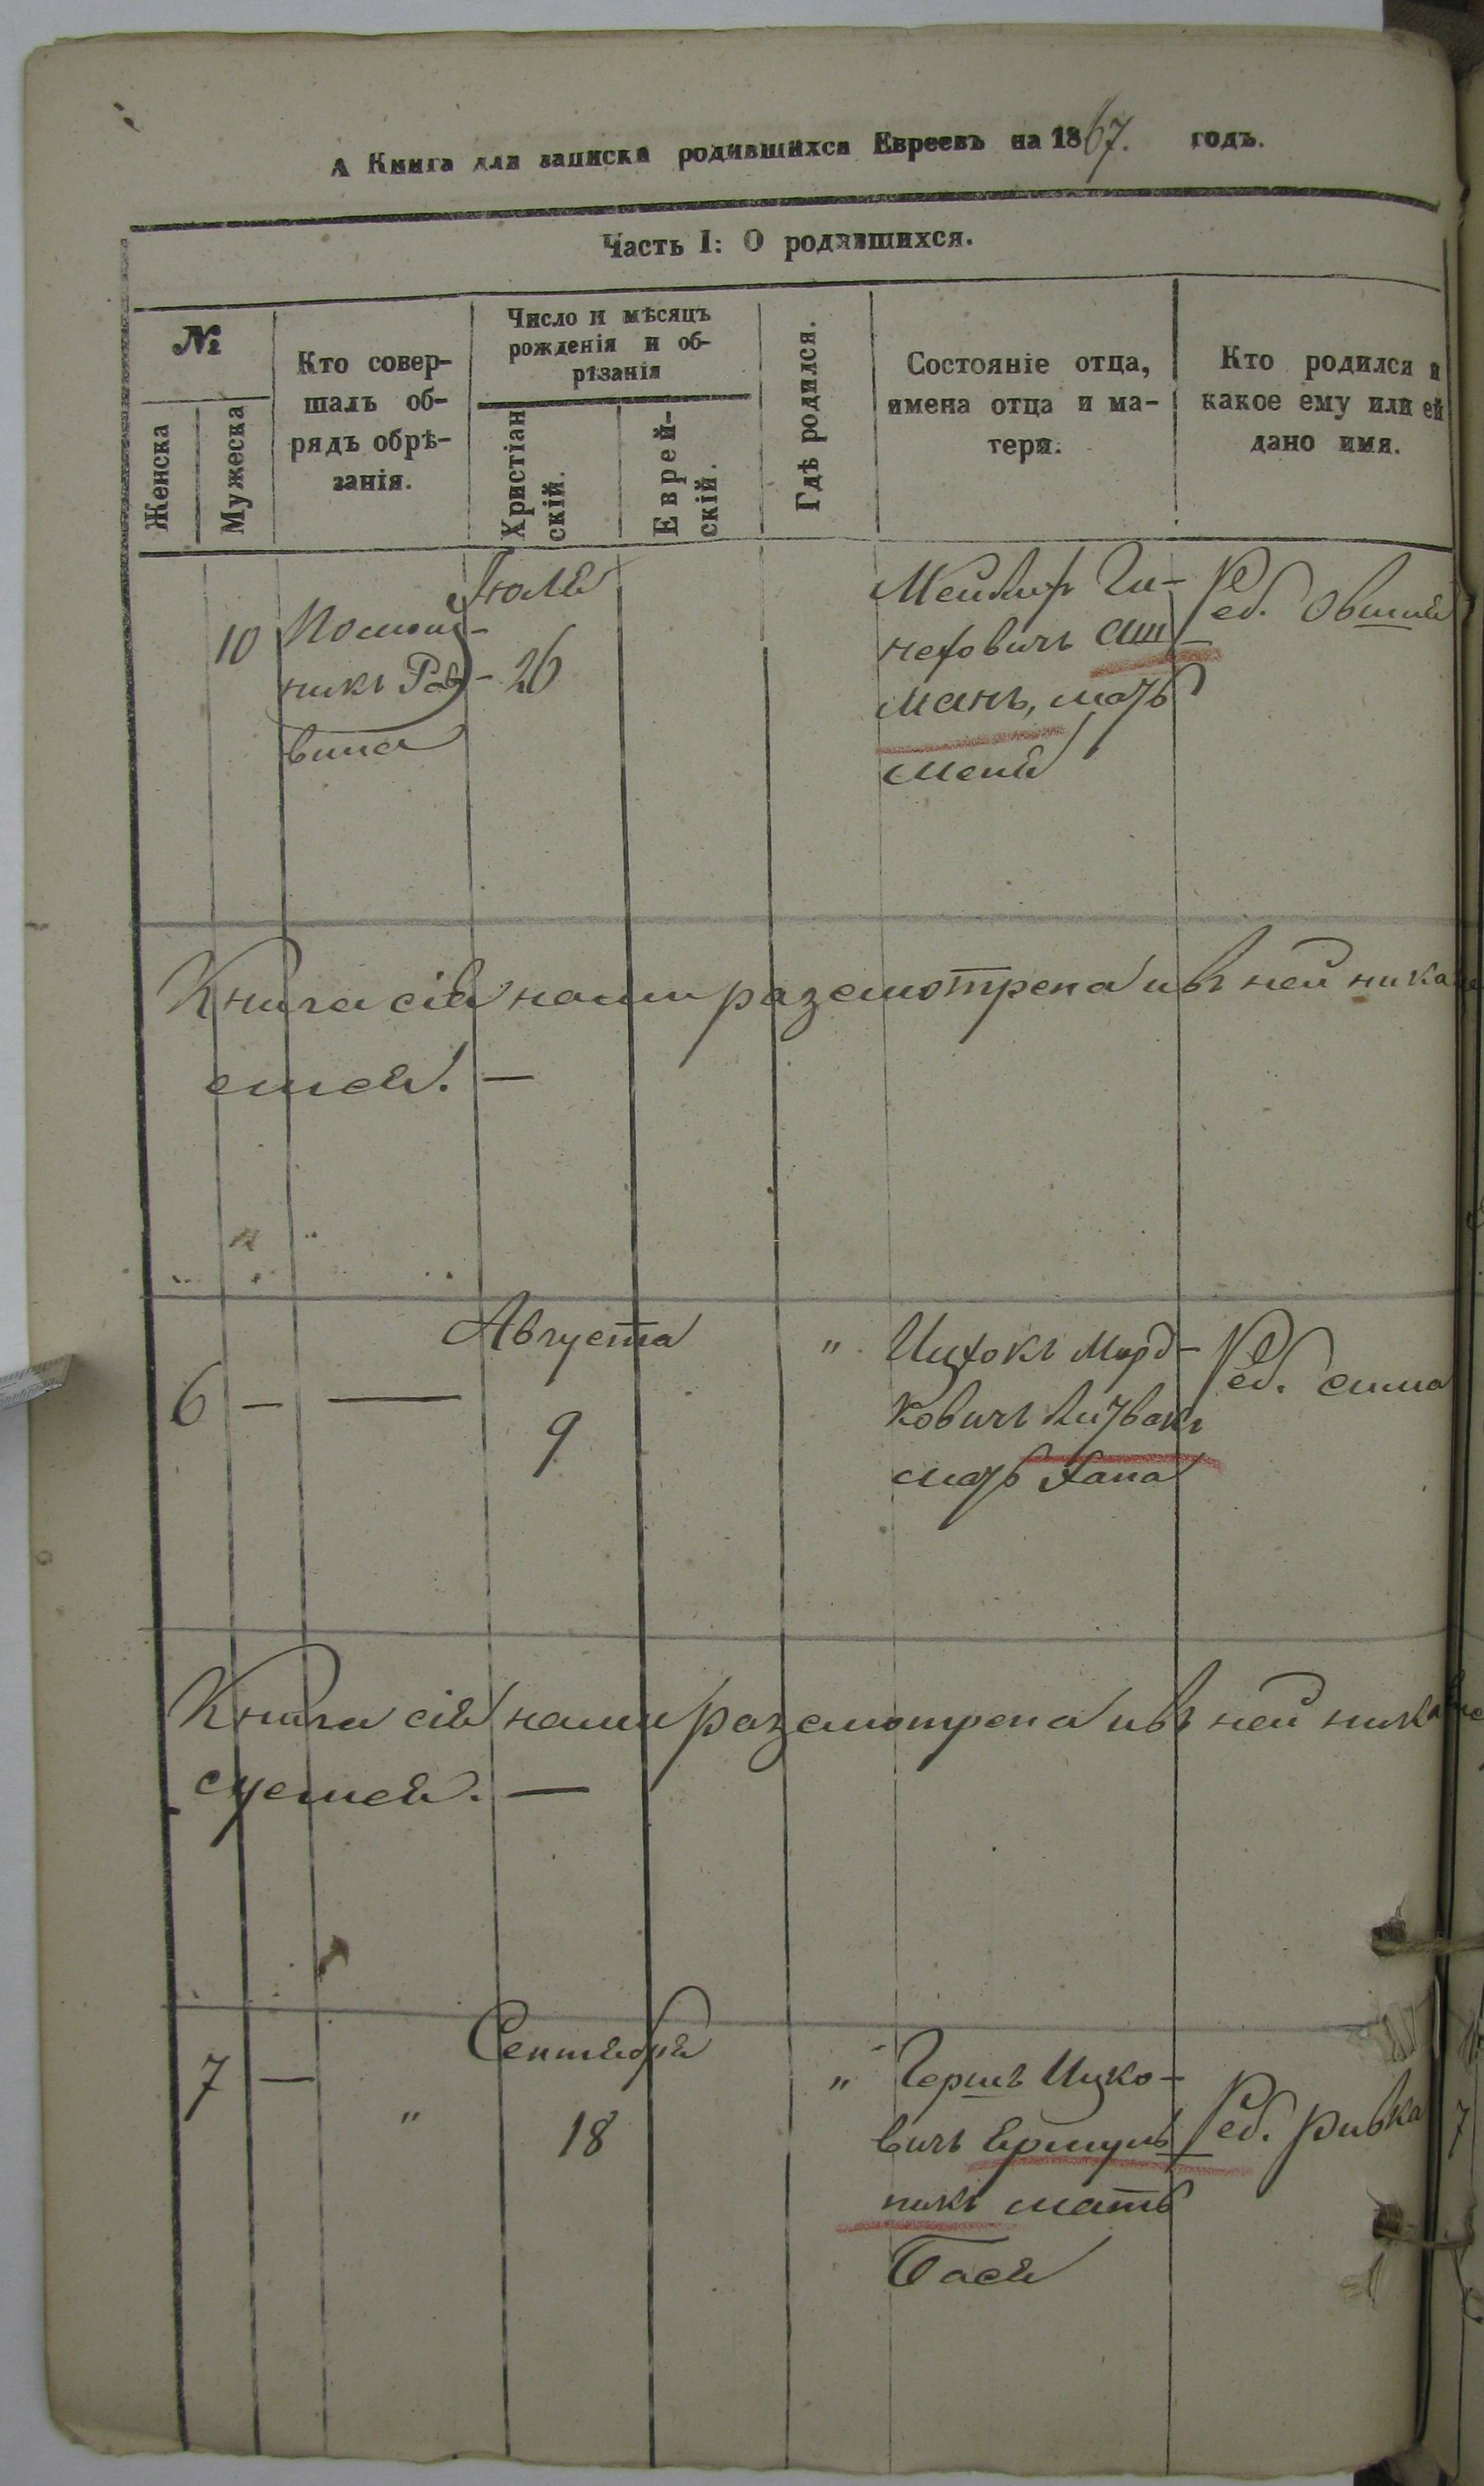 А Книга для записки родившихся Евреевъ на 1867. годъ.
Часть I: О родившихся.
№
Женска
Мужеска
Кто совер-
шалъ об-
рядъ обрѣ-
занія.
Число и мѣсяцъ
рожденія и об-
рѣзанія
Христіан
скій.
Еврей-
скій.
Гдѣ родился.
Состояніе отца,
имена отца и ма-
тери.
Кто родился и
какое ему или ей
дано имя.
10
Помощ-
никъ Рав-
вина
Іюля
26
Мейлих
неховичъ
манъ, мать
Реб. Овший
Книга сія нами разсмотрена и въ ней ника
—
6 — —
Августа
9
"
Ицхокъ Морд-
ковичъ Литвакъ
мать Хана
Реб. сима
Книга сія нами разсмотрена и въ ней ника
—
7 — "
Сентября
18
"
Гершъ Ицко-
вичъ
никъ мать
Бася
Реб. Ривка
7